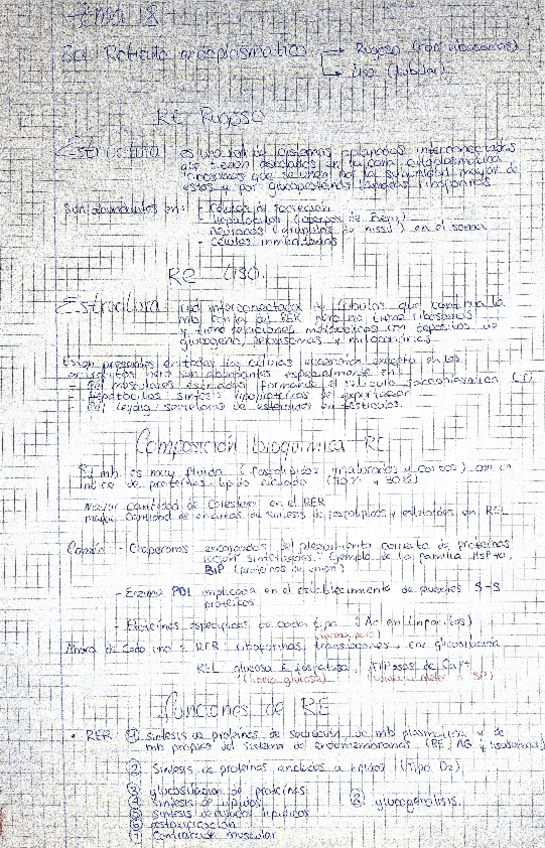 Tema 18
El Retículo endoplasmático → Rugoso (con ribosomas)
↳ Liso (tubular)
RE Rugoso
Estructura: es una red de cisternas aplanadas interconectadas
que tienen asociados en su cara citoplasmática
ribosomas que se unen por la subunidad mayor de
estos y por glucoproteínas llamadas riboforinas
Son abundantes en: - células de secreción
- Hepatocitos (cuerpos de Berg)
- Neuronas (grumulos de nissl) en el soma
- Células inmunitarias
RE LISO.
Estructura: red interconectada de túbulos que continúa la
mb con la del RER pero no tiene ribosomas
y tiene relaciones metabólicas con depósitos de
glucógeno, peroxisomas y mitocondrias.
Están presentes en todas las células excepto en los
pero son abundantes especialmente en:
- Cel musculares estriadas formando el retículo sarcoplasmático
- Hepatocitos síntesis lipoproteínas de exportación
- Cel Leydig secretoras de esteroides en testículos.
Composición bioquímica RE
Su mb es muy fluida (fosfolípidos insaturados y cortos) con un
índice de proteínas lípido elevado (70% y 30%)
Mayor cantidad de colesterol en el RER
mayor cantidad de enzimas de síntesis de fosfolípidos y esteroides en REL
Común - Chaperonas encargadas del plegamiento correcto de proteínas
recién sintetizadas. Ejemplo de la familia HSP70
BiP (proteínas de unión)
- Enzima PDI implicada en el establecimiento de puentes S-S
proteínas
- Proteínas específicas de cada tipo
Ahora de cada uno: RER: riboforinas, translocones, enz glicosilación
REL glucosa 6 fosfatasa,
(libera glucosa)
Funciones de RE
• RER ① síntesis de proteínas de secreción, de mb plasmática y de
mb propias del sistema de endomembranas (RE, AG y lisosomas)
② Síntesis de proteínas ancladas a lípidos
③ glucosilación de proteínas
④ síntesis de lípidos
⑤ síntesis derivados lipídicos
⑥ destoxificación
⑦ Contracción muscular
⑧ glucogenolisis.